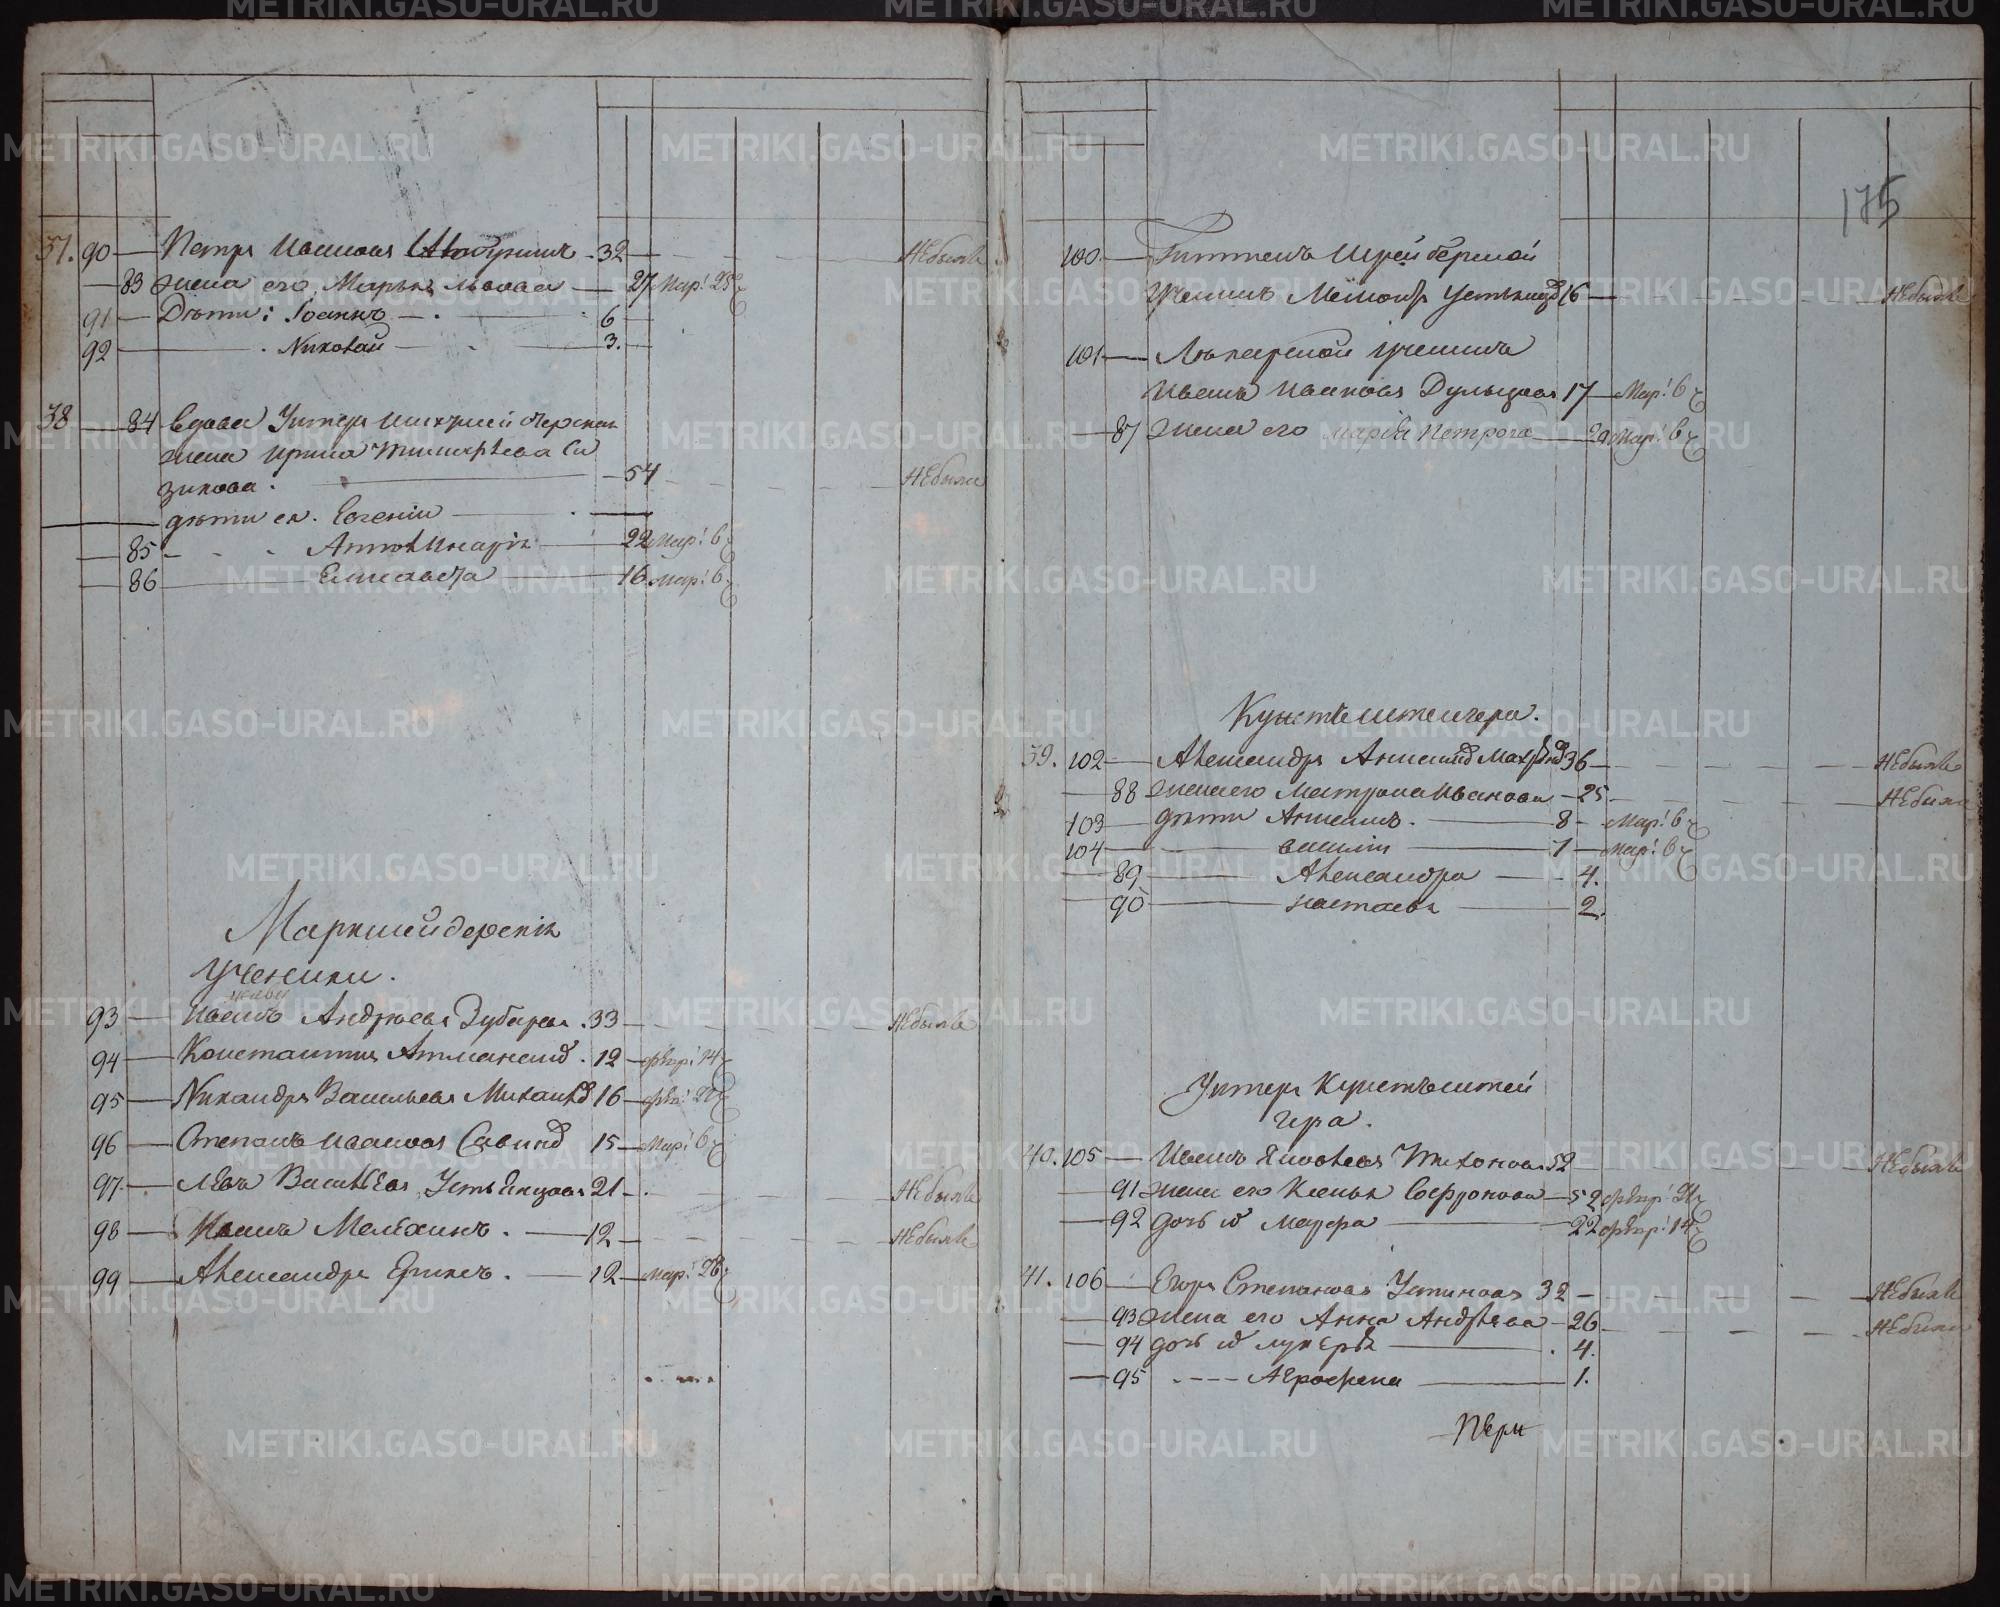 37. 90 — Петръ Ивановъ 32 — Небылъ
83 жена его Марья Львова — 27 Мар: 28
91 — Дѣти: Іоаннъ — 6
92 — Николай — 3.
38 — 84 Вдова Унтеръ
жена Ирина
зикова. — 54 — Небыла
дѣти ея. Евгенія —
85 - Апполинарія 22 Мар: 6
86 — Елисавета 16 Мар: 6
Маркшейдерскія
ученики.
93 — Иванъ Андреевъ Зубаревъ . 33 — Небылъ
94 — Константинъ . 12 — Февр: 14
95 — Никандръ Васильевъ 16 — Фев:
96 — Степанъ Ивановъ Савинъ 15 — Мар: 6
97 — Левъ Васильевъ Устьянцовъ 21 — Небылъ
98 — Иванъ Мелехинъ . — 12 — Небылъ
99 — Александръ . — 12 — Мар: 28
175
100 — Гиттенъ Шрейберской
Ученикъ Устьянцов 16 — Небылъ
101 — Лѣкарской ученикъ
Иванъ Ивановъ 17 — Мар: 6
87 жена его Марѳа Петрова Мар: 6
Кунстштейгера.
39. 102 — Александръ 36 — Небылъ
88 жена его Матрона Иванова — 25 — Небыла
103 — дѣти — 8 - Мар: 6
104 — Василій — 7 — Мар: 6
89 — Александра — 4.
90 — Настасья — 2.
Унтеръ Кунстъштей
гера.
40. 105 — Иванъ Яковлевъ Тихоновъ 52 — Небылъ
91 жена его Ксенья Софронова — 52 Февр:
92 дочь — 22 Февр: 14
41. 106 — Егоръ Степановъ Устиновъ 32 — Небылъ
93 жена его Анна Андреева — 26 — Небыла
94 дочь Лукерья — 4.
95 ---- Агрофена — 1.
METRIKI.GASO-URAL.RU